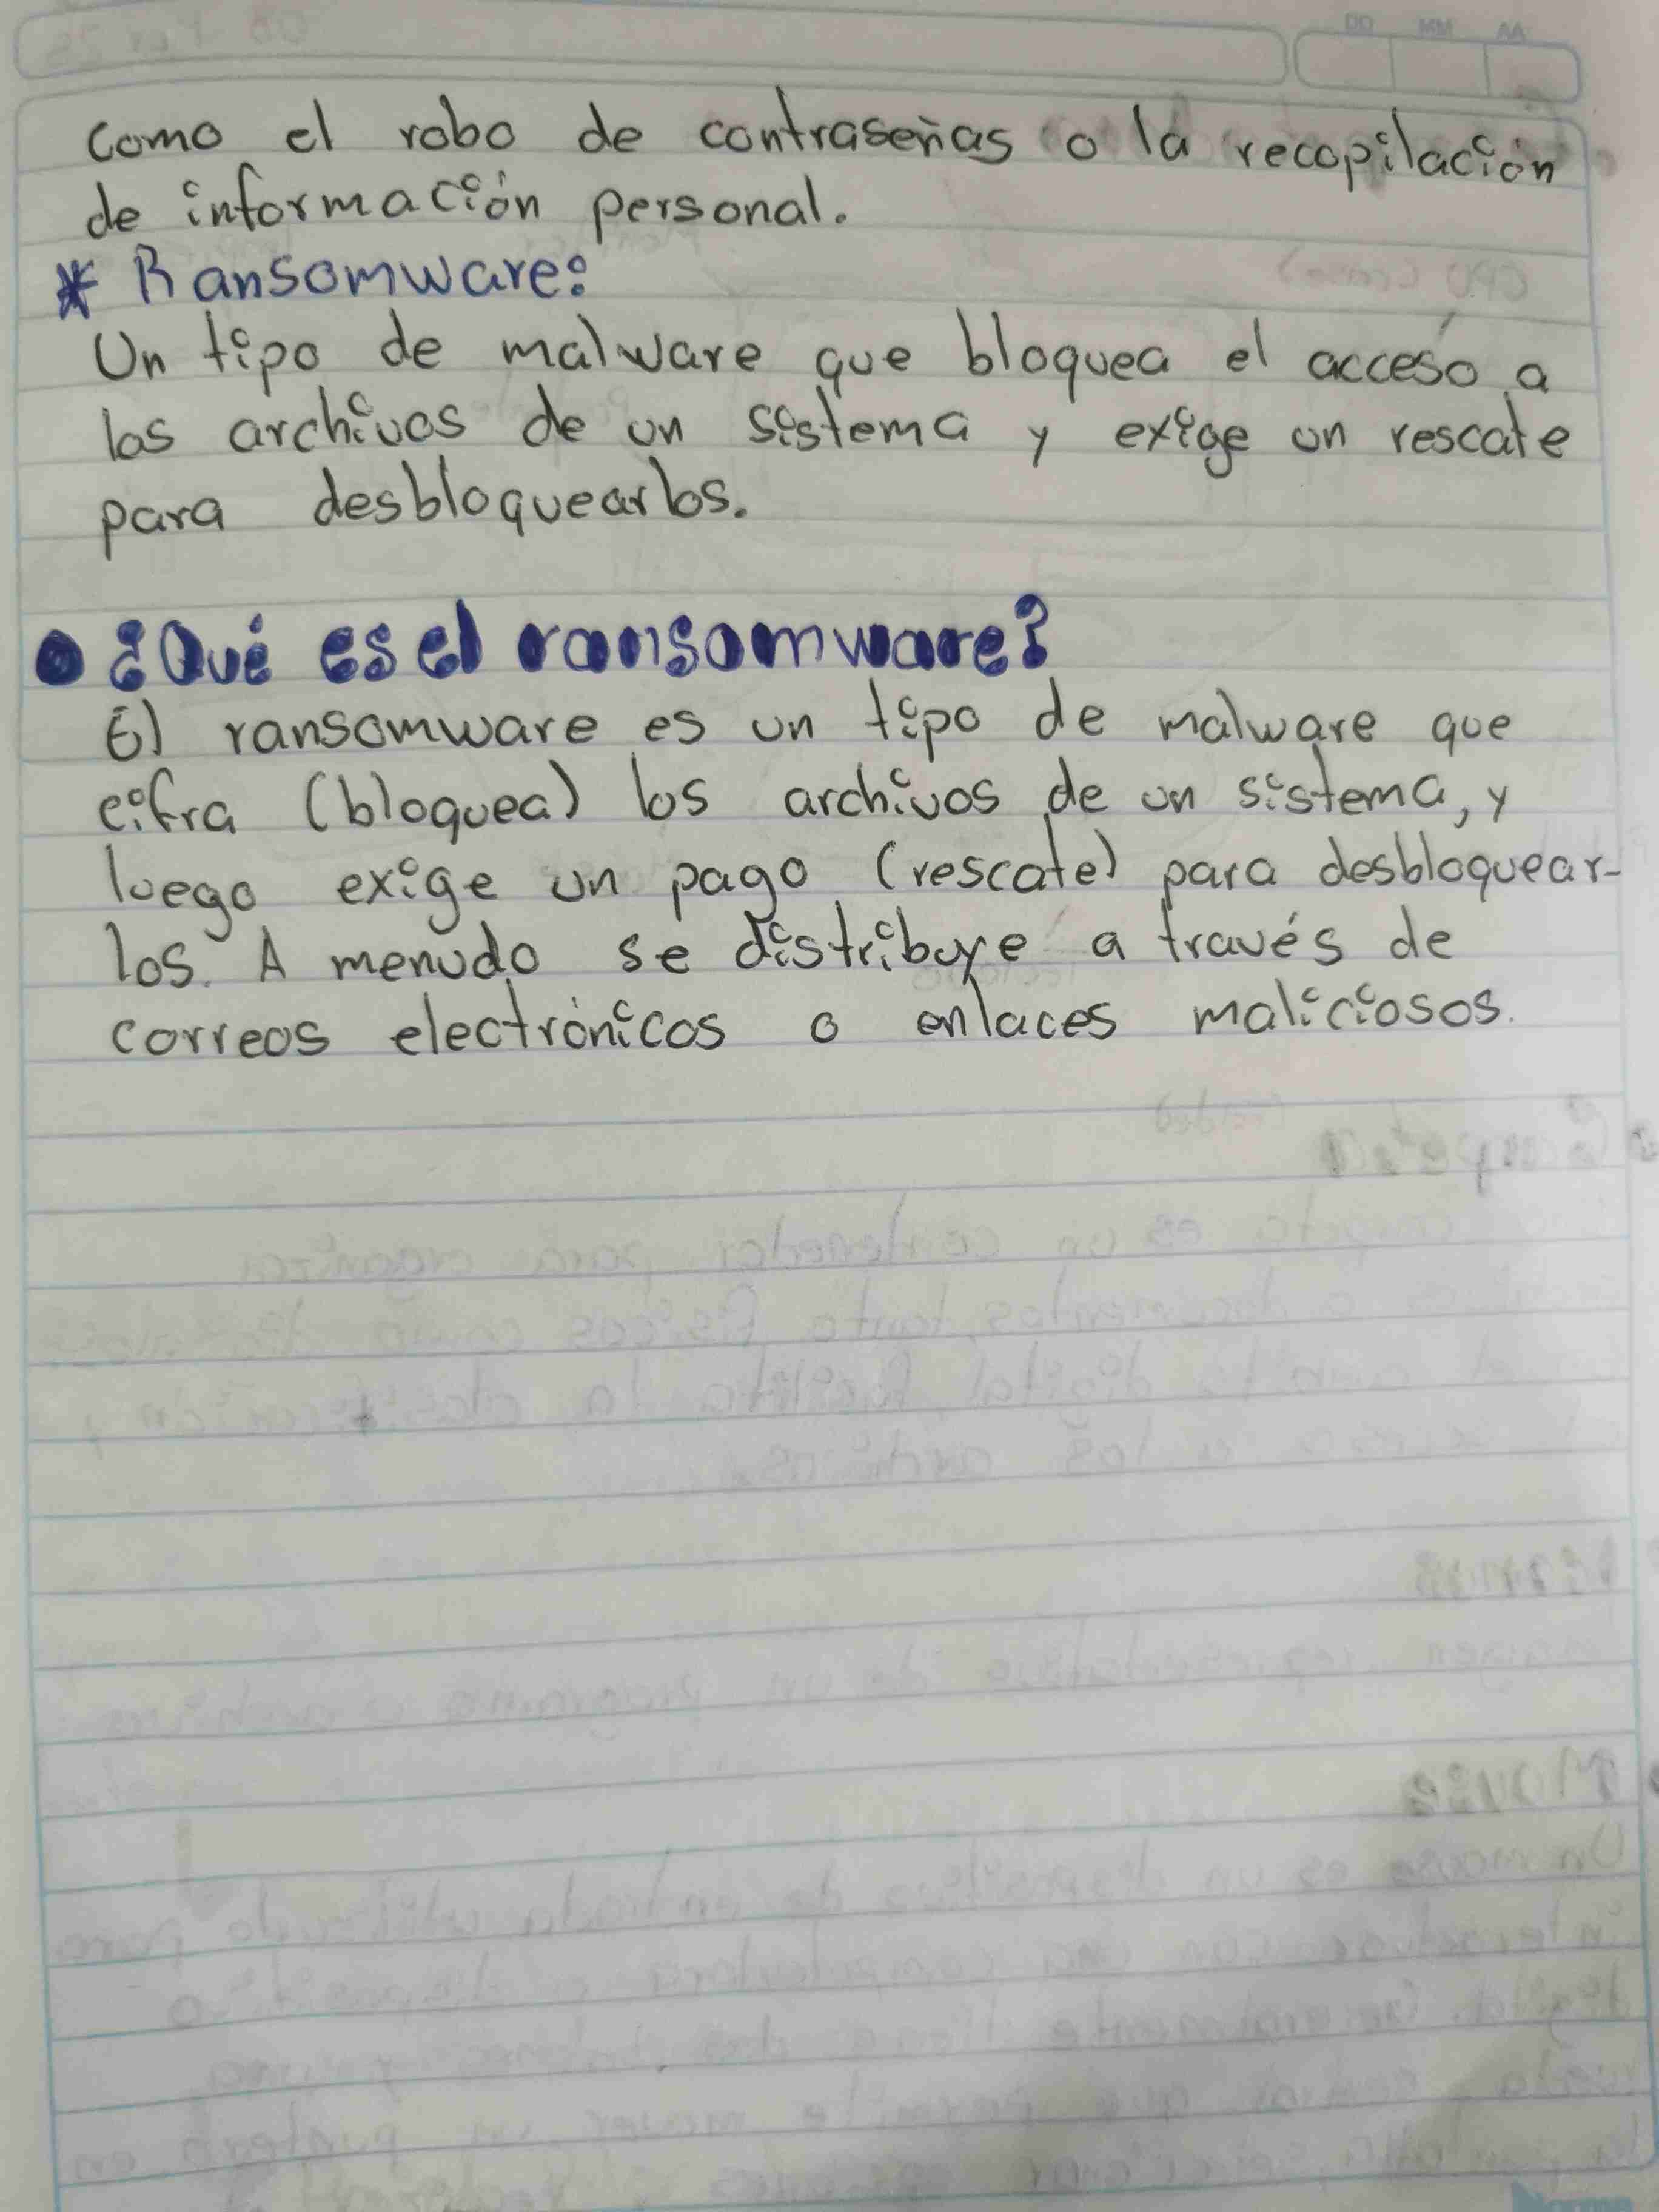 DD MM AA
Como el robo de contraseñas o la recopilación
de información personal.
* Ransomware:
Un tipo de malware que bloquea el acceso a
los archivos de un sistema y exige un rescate
para desbloquearlos.
• ¿Qué es el ransomware?
El ransomware es un tipo de malware que
cifra (bloquea) los archivos de un sistema, y
luego exige un pago (rescate) para desbloquear-
los. A menudo se distribuye a través de
correos electrónicos o enlaces maliciosos.